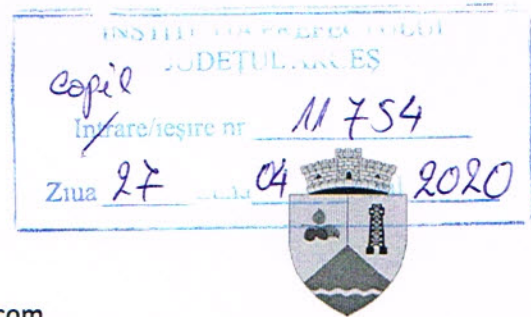 INSTITUȚIA PREFECTULUI
JUDEȚUL ARGEȘ
copil
Intrare/ieșire nr 11754
Ziua 27 04 2020
com